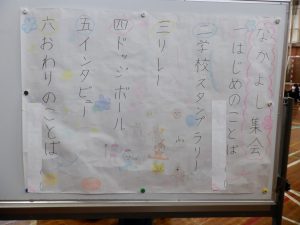 なかよし集会
一はじめのことば
二学校スタンプラリー
三リレー
四ドッジボール
五インタビュー
六おわりのことば